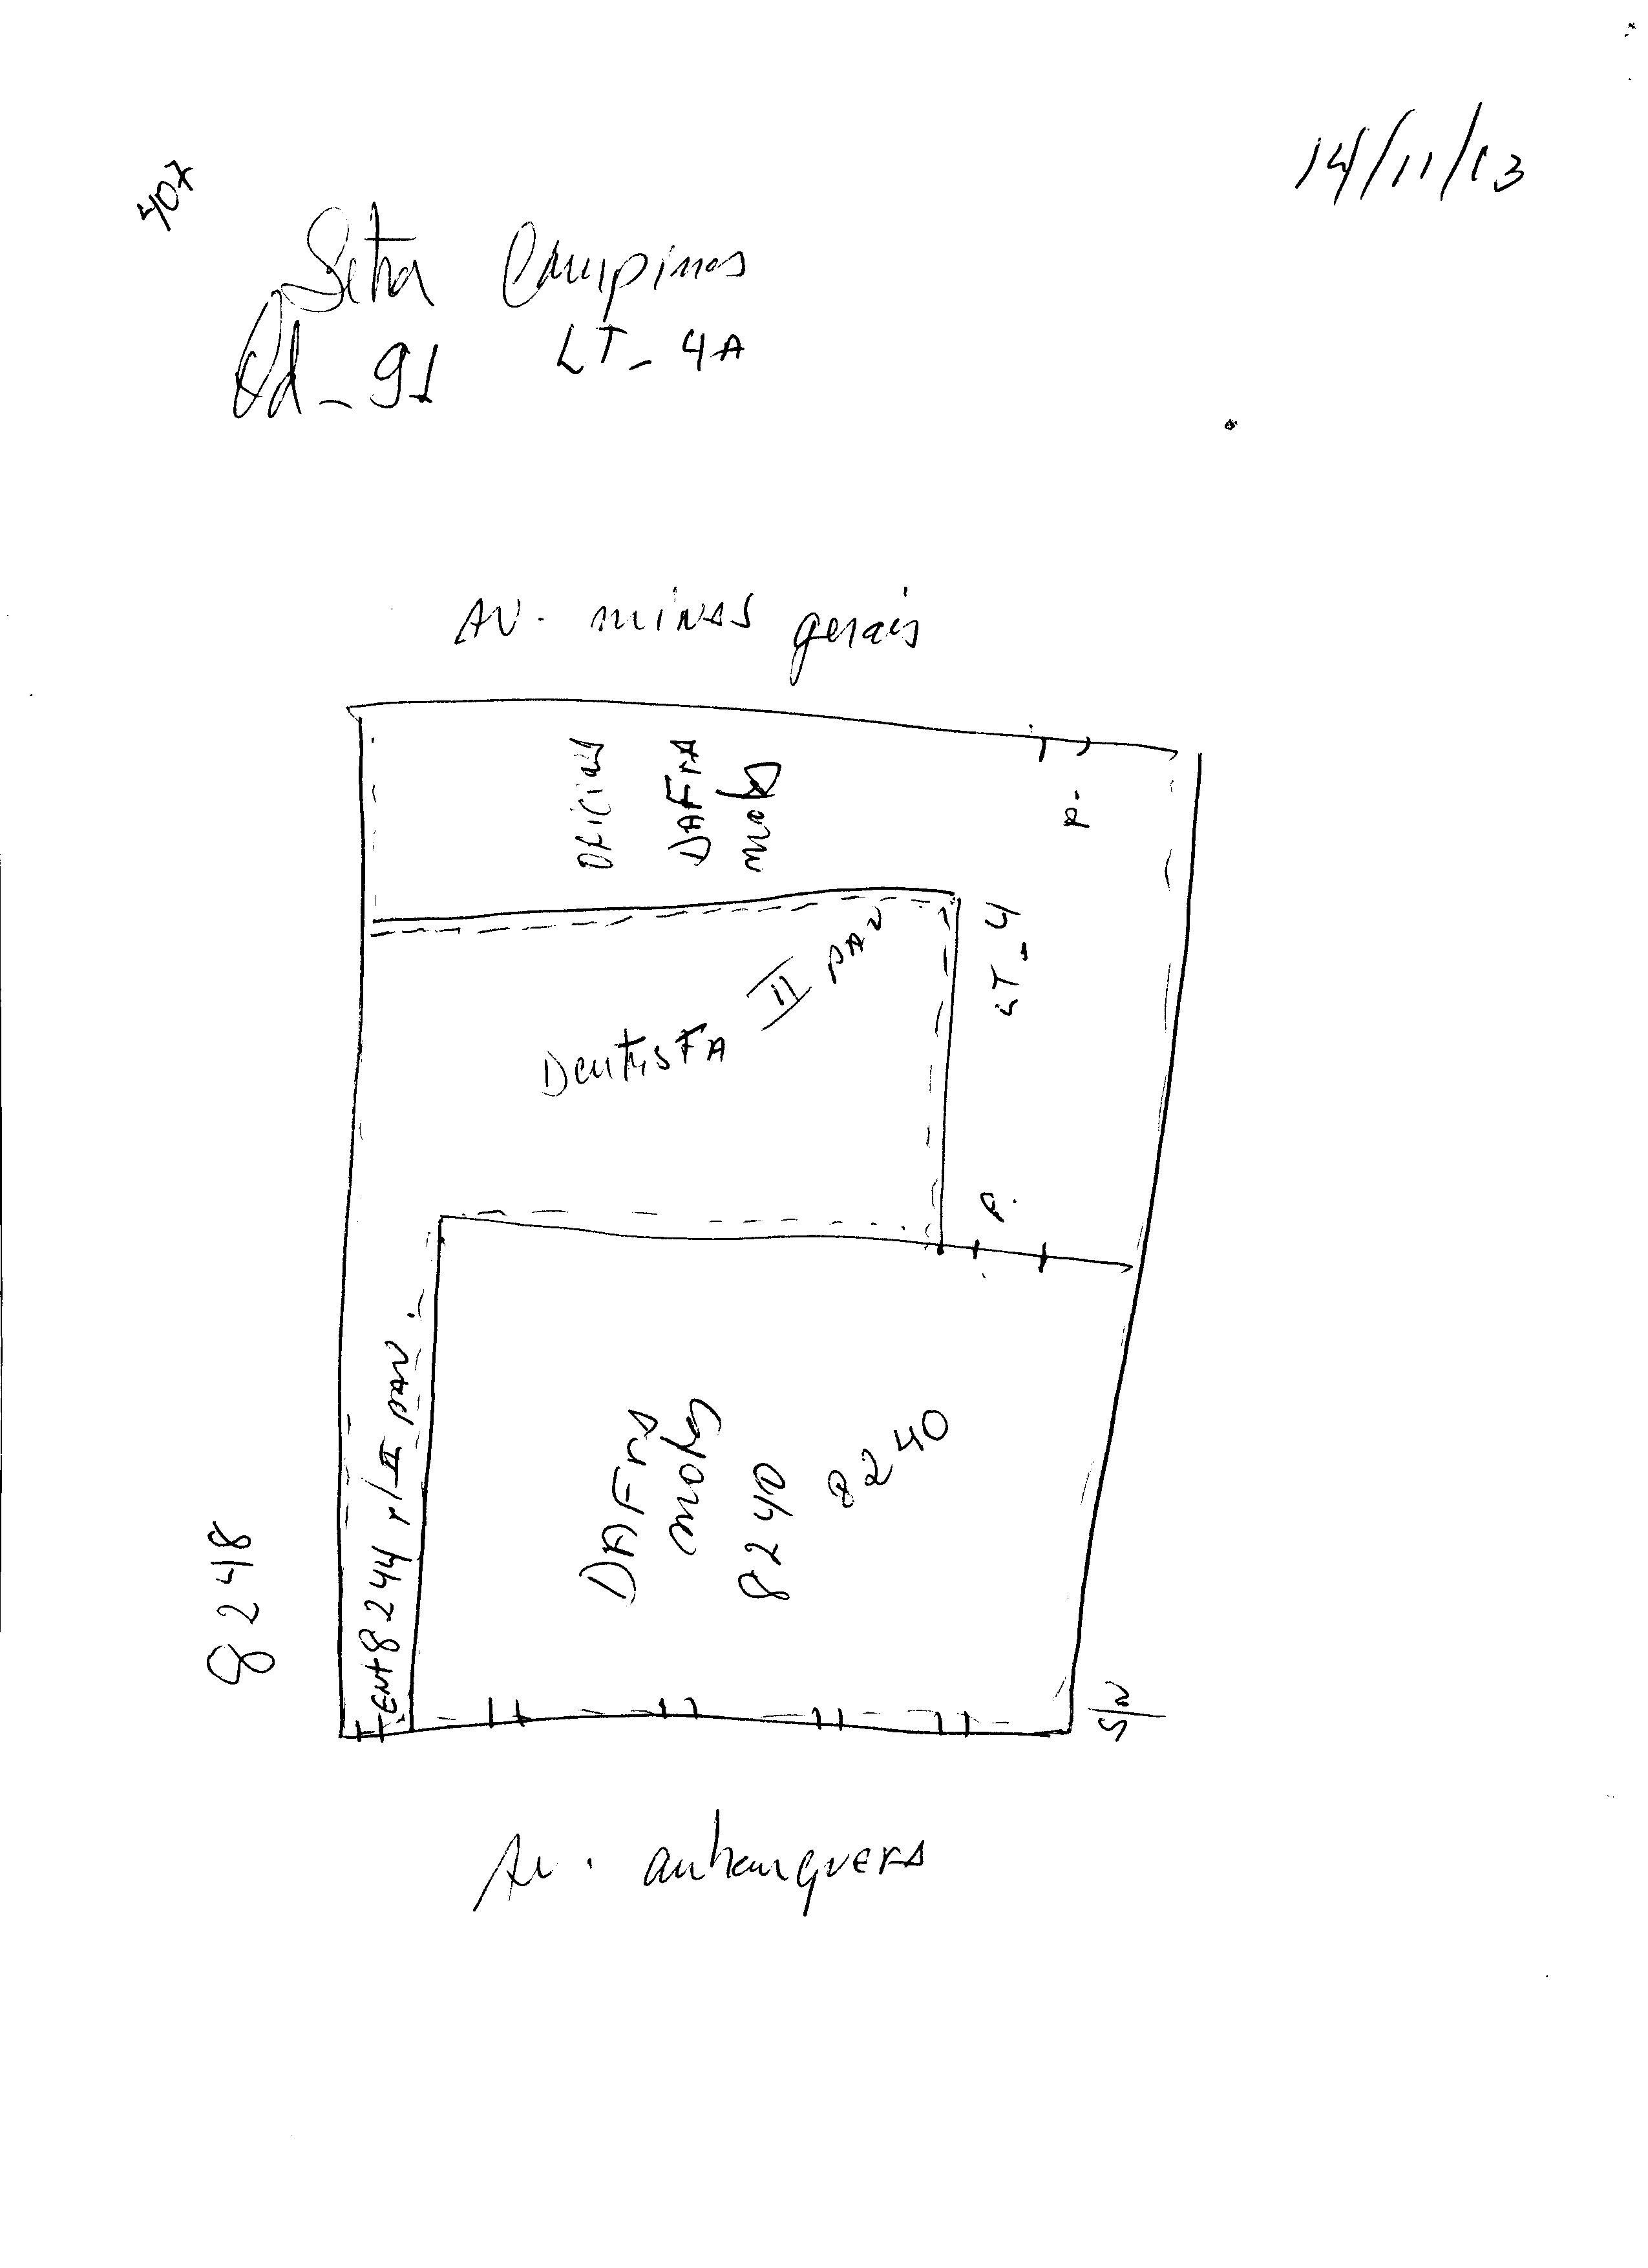 14/11/13
Setor Campinas
Qd_91 LT_4A
AV. minas gerais
Oficina
DAFrA
motos
P.
LT_4
II PAV
DentisTA
P.
ENT 8244 p/ II PAV.
8248
DAFrA
motos
8240
8240
S/N
Av. anhanguera